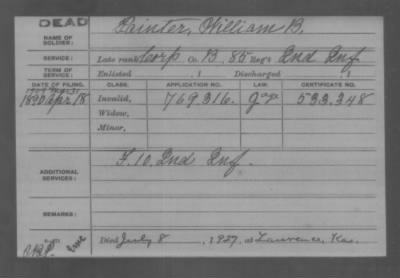 DEAD
NAME OF SOLDIER: Painter, William B.
SERVICE: Late rank Corp Co. B, 85 Reg't Ind Inf.
TERM OF SERVICE: Enlisted , 1 Discharged , 1
DATE OF FILING. CLASS. APPLICATION NO. LAW. CERTIFICATE NO.
1890 Apr. 18 Invalid, 769.316. 533.348
Widow,
Minor,
ADDITIONAL SERVICES: F. 10. Ind Inf.
REMARKS:
Died July 8, 1927, at Lawrence, Kas.